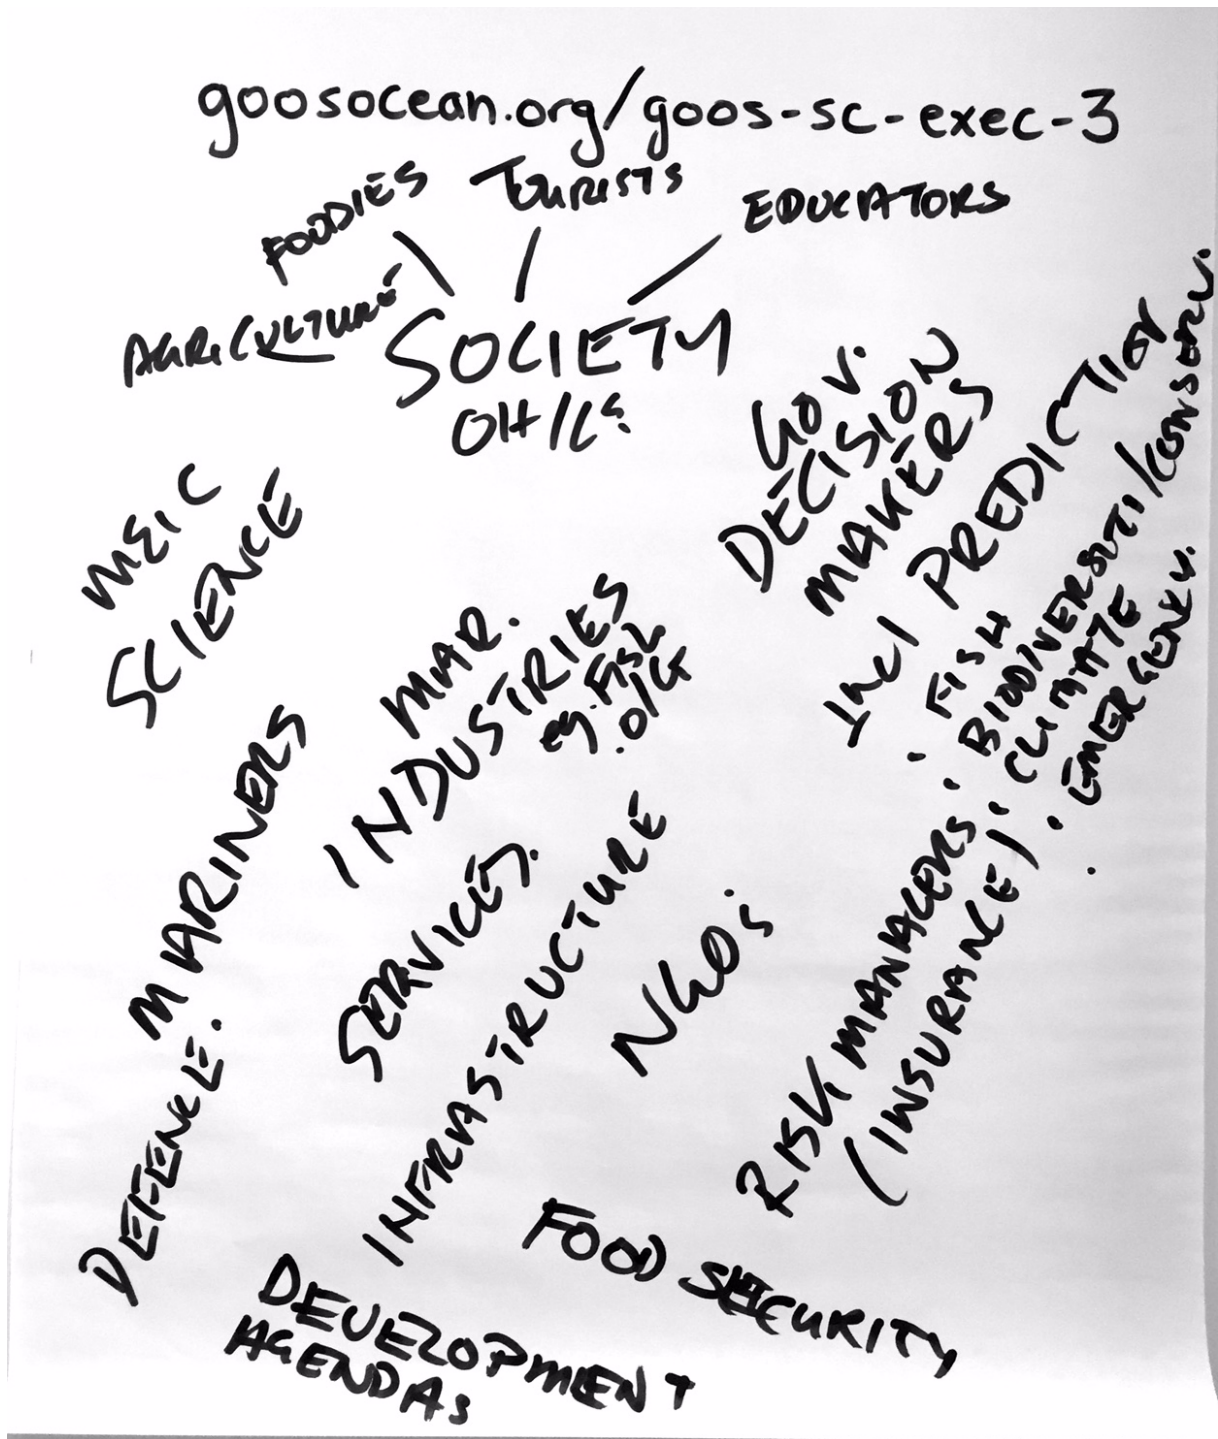 goosocean.org/goos-sc-exec-3
FOODIES
TOURISTS
EDUCATORS
AGRICULTURE
SOCIETY
GOV.
DECISION
MAKERS
Incl PREDICTION
• FISH
• BIODIVERSITI/CONSERV.
• CLIMATE
• EMERGENCY.
•
SCIENCE
MAR.
INDUSTRIES
eg. FISH
. O/G
MARINERS
DEFENCE.
SERVICES.
INFRASTRUCTURE
NGOs
RISK MANAGERS
(INSURANCE)
FOOD SECURITY
DEVELOPMENT
AGENDAS